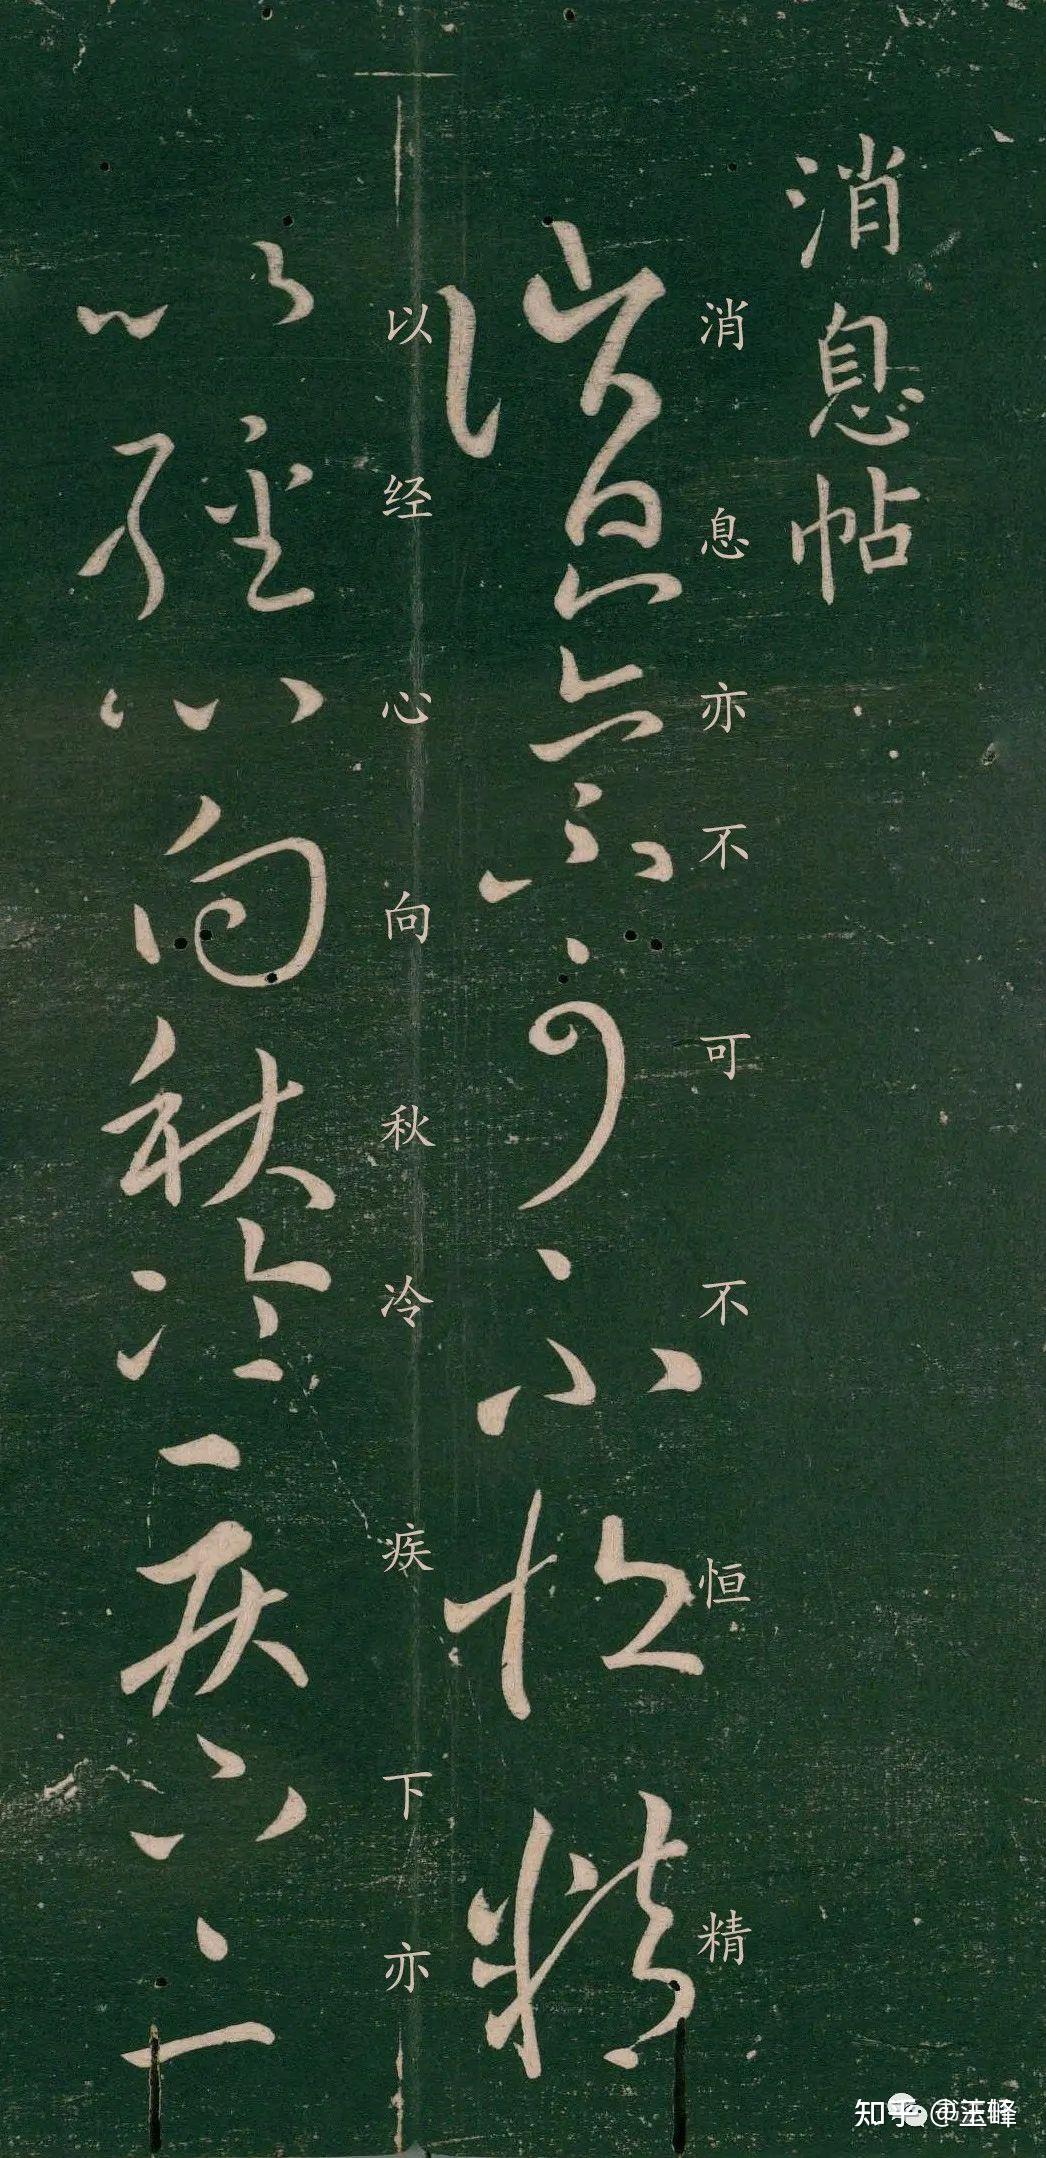 消息帖
消息亦不可不恒精
以经心向秋冷疾下亦
知乎 @玉峰